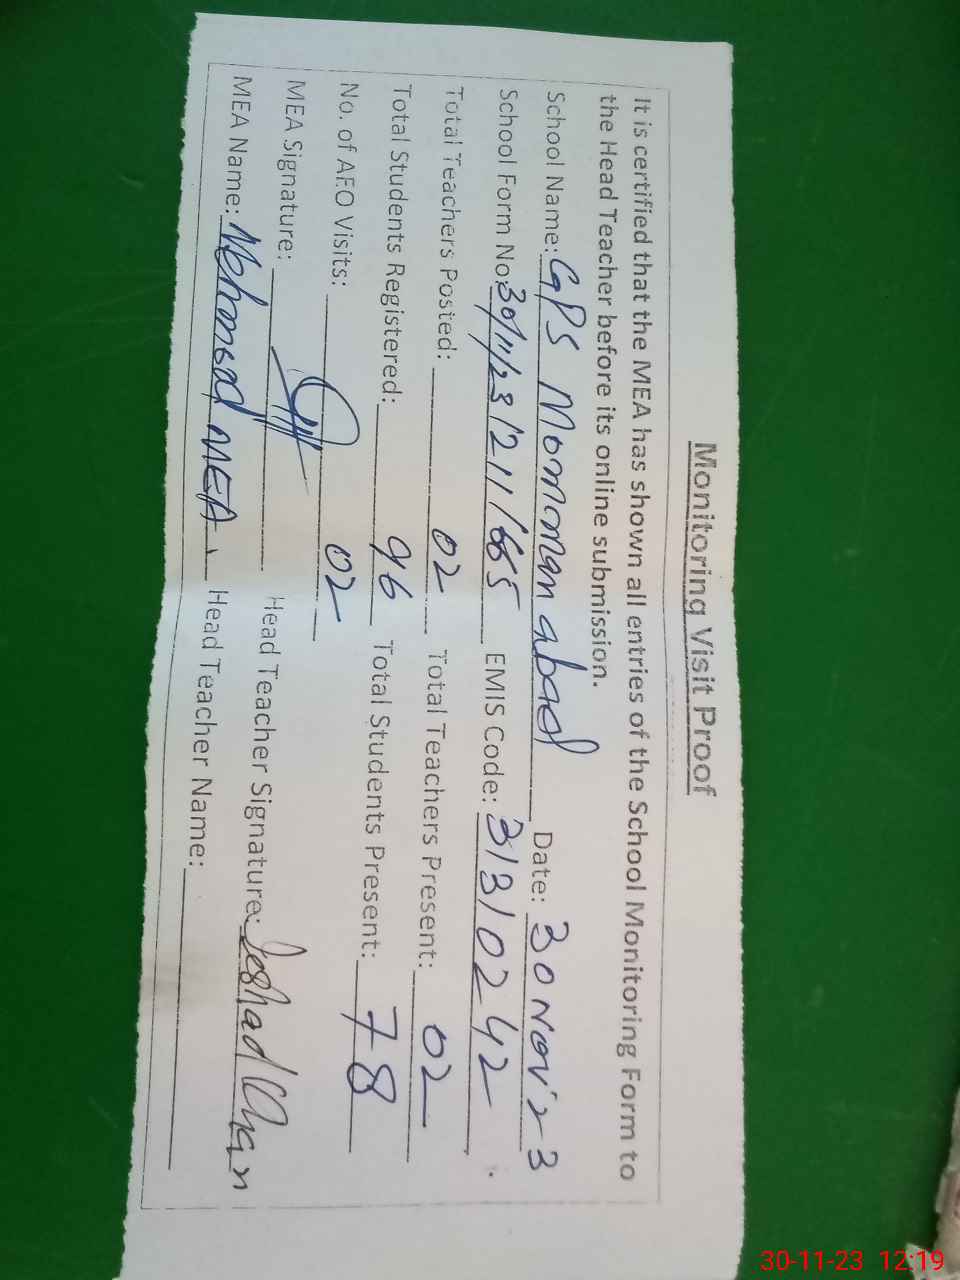 Monitoring Visit Proof
It is certified that the MEA has shown all entries of the School Monitoring Form to
the Head Teacher before its online submission.
School Name: GPS Momimanabad Date: 30 Nov'23
School Form No: 30/11/23/211/665 EMIS Code: 31310242
Total Teachers Posted: 02 Total Teachers Present: 02
Total Students Registered: 96 Total Students Present: 78
No. of AEO Visits: 02
MEA Signature: Head Teacher Signature:
MEA Name: Mehmood MEA Head Teacher Name:
30-11-23 12:19